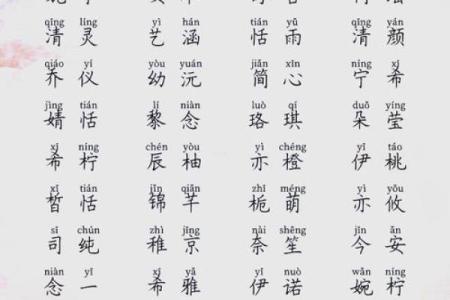 qīng líng yì hán tián yǔ qīng yán
清灵 艺涵 恬雨 清颜
qiáo yí yòu yuán jiǎn xīn níng xī
乔仪 幼沅 简心 宁希
jìng tián lí niàn luò qí duǒ yíng
婧恬 黎念 珞琪 朵莹
xī níng chén yòu yì chéng yī táo
希柠 辰柚 亦橙 伊桃
xī tián jǐn qiān zhī méng yì yōu
皙恬 锦芊 栀萌 亦攸
sī chún zhì jīng nài shēng jīn ān
司纯 稚京 奈笙 今安
niàn yī xī yǎ yī nuò wǎn níng
念一 希雅 伊诺 婉柠